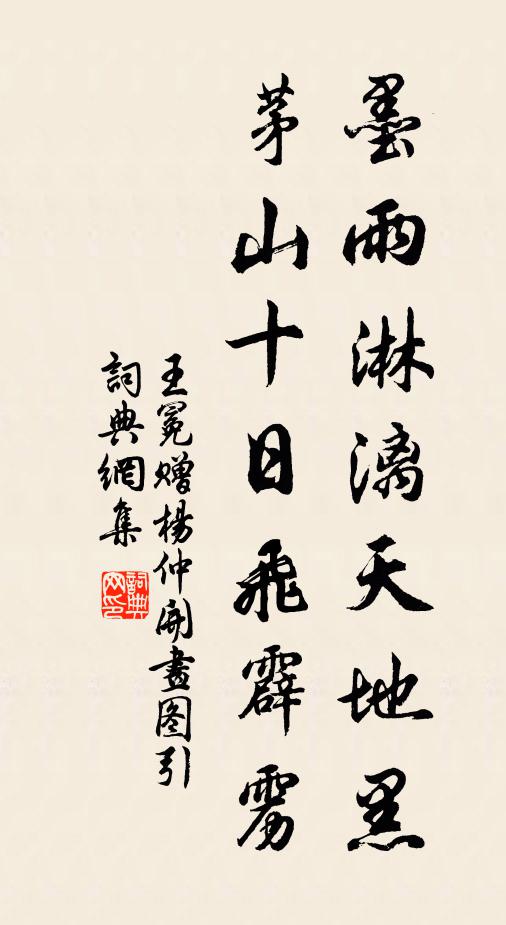 墨雨淋漓天地黑
茅山十日飛霹雳
王冕贈楊仲開畫图引
詞典網集
詞典网印